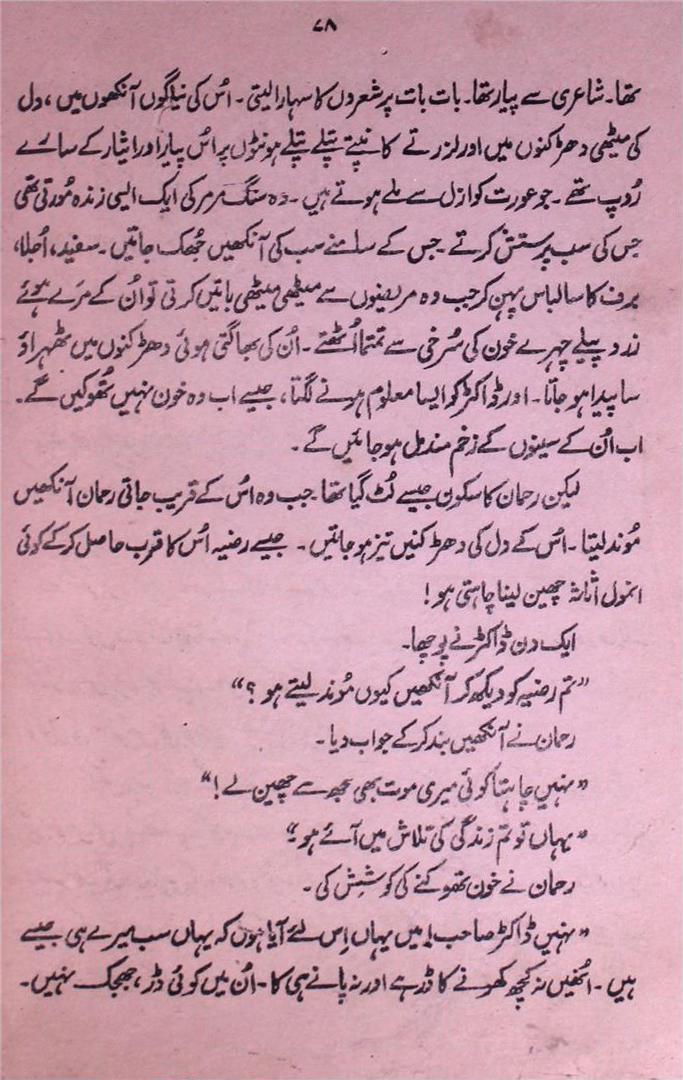 ۷۸
تھا۔ شاعری سے پیار تھا۔ بات بات پر شعروں کا سہارا لیتی۔ اُس کی نیلگوں آنکھوں میں، دل
کی میٹھی دھڑکنوں میں اور لرزتے کانپتے پتلے پتلے ہونٹوں پر اُس پیار اور ایثار کے سارے
رُوپ تھے۔ جو عورت کو ازل سے ملے ہوتے ہیں۔ وہ سنگ مرمر کی ایک ایسی زندہ مُورتی تھی
جس کی سب پرستش کرتے۔ جس کے سامنے سب کی آنکھیں جُھک جاتیں۔ سفید، اُجلا،
برف کا سا لباس پہن کر جب وہ مریضوں سے میٹھی میٹھی باتیں کرتی تو اُن کے مَرے ہوئے
زرد پیلے چہرے خون کی سُرخی سے تمتما اُٹھتے۔ اُن کی بھاگتی ہوئی دھڑکنوں میں ٹھہراؤ
سا پیدا ہو جاتا۔ اور ڈاکٹر کو ایسا معلوم ہونے لگتا، جیسے اب وہ خون نہیں تُھوکیں گے۔
اب اُن کے سینوں کے زخم مندمل ہو جائیں گے۔
لیکن رحمان کا سکون جیسے لُٹ گیا تھا۔ جب وہ اُس کے قریب جاتی رحمان آنکھیں
مُوند لیتا۔ اُس کے دل کی دھڑکنیں تیز ہو جاتیں۔ جیسے رضیہ اُس کا قرب حاصل کرکے کوئی
انمول اثاثہ چھین لینا چاہتی ہو!
ایک دن ڈاکٹر نے پوچھا۔
”تم رضیہ کو دیکھ کر آنکھیں کیوں مُوند لیتے ہو؟“
رحمان نے آنکھیں بند کرکے جواب دیا۔
”نہیں چاہتا کوئی میری موت بھی مجھ سے چھین لے!“
”یہاں تو تم زندگی کی تلاش میں آئے ہو۔“
رحمان نے خون تھوکنے کی کوشش کی۔
”نہیں ڈاکٹر صاحب! میں یہاں اِس لئے آیا ہوں کہ یہاں سب میرے ہی جیسے
ہیں۔ اُنھیں نہ کچھ کھونے کا ڈر ہے اور نہ پانے ہی کا۔ اُن میں کوئی ڈر، جھجک نہیں۔